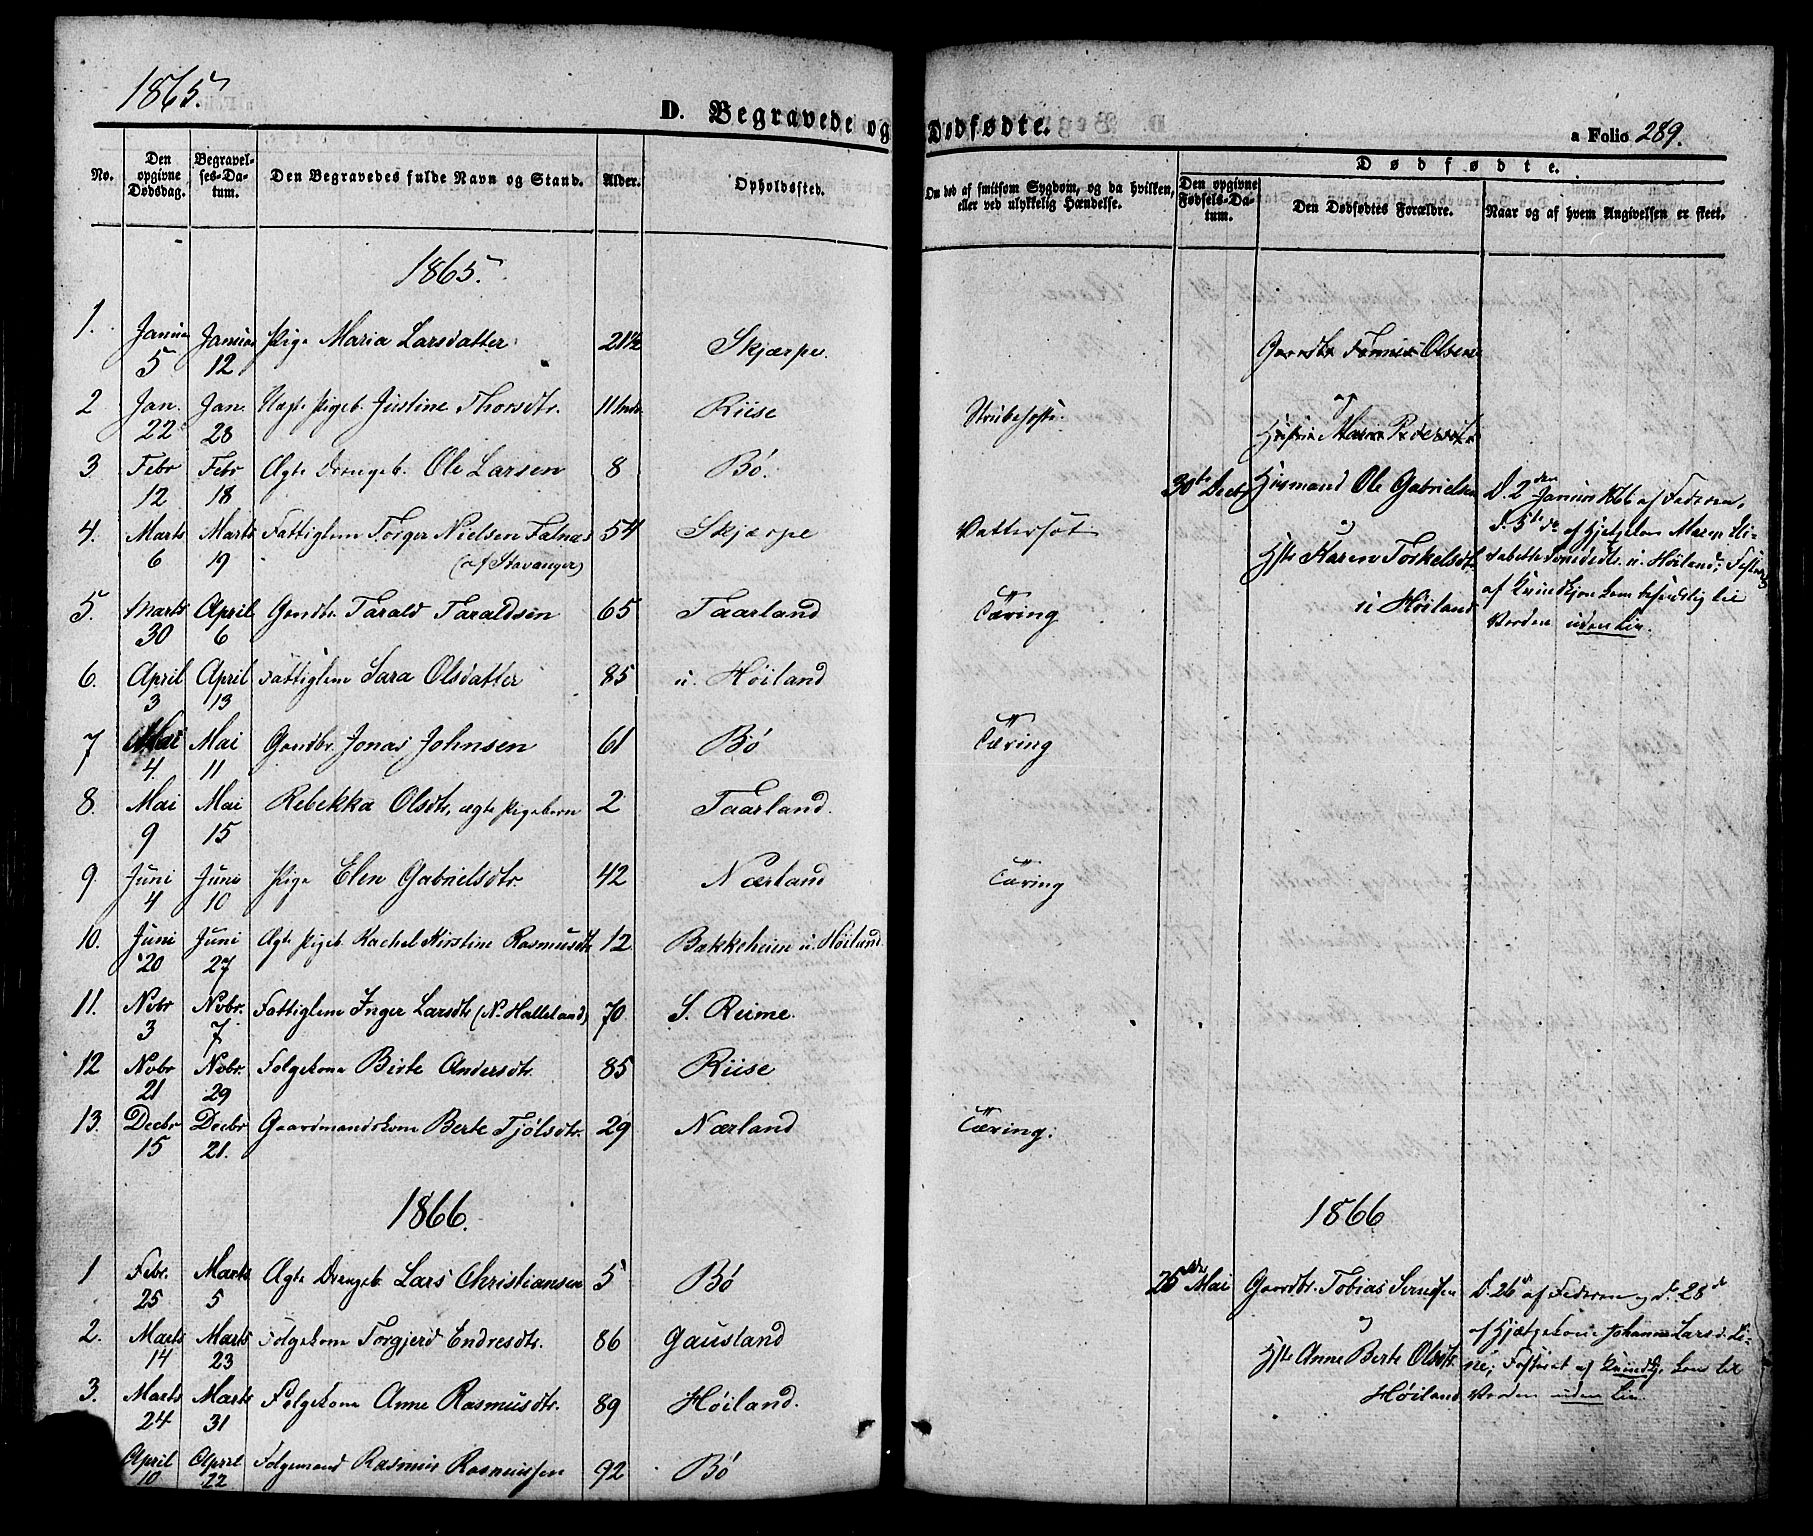 1865.
D. Begravede og Dødfødte.
a Folio 289.
No.
Den opgivne Dødsdag.
Begravelses-Datum.
Den Begravedes fulde Navn og Stand.
Alder.
Opholdssted.
Om død af smitsom Sygdom, og da hvilken, eller ved ulykkelig Hændelse.
Dødfødte.
Den opgivne Fødsels-Datum.
Den Dødfødtes Forældre.
Naar og af hvem Angivelsen er skeet.
1865.
1. Januar 5 Januar 12 Pige Maria Larsdatter 21½ Skjærpe.
2 Jan. 22 Jan. 28 Pigeb. Justine Thorsdtr. Riise Strubehoste.
3 Febr 12 Febr 18 Ægte Drengeb. Ole Larsen 8 Bø.
4. Marts 6 Marts 19 Fattiglem Torger Nielsen (af Stavanger) 54 Skjærpe Vattersot
5. Marts 30 April 6 Gaardbr. Tarald Taraldsen 65 Taarland Tæring
6. April 3 April 13 Fattiglem Sara Olsdatter 85 u. Høiland
7 Mai 4. Mai 11 Gaardbr. Jonas Johnsen 61 Bø Tæring
8. Mai 9 Mai 15 Rebekka Olsdtr, ægte Pigebarn 2 Taarland.
9. Juni 4 Juni 10 Pige Elen Gabrielsdtr. 42 Nærland Tæring
10. Juni 20 Juni 27 Ægte Pigeb. Rachel Kirstine Rasmusdtr 12 Bakkeheien u. Høiland.
11. Novbr 3 Novbr. 7 Fattiglem Inger Larsdtr (N. Halleland) 70 S. Reime.
12 Novbr 21 Novbr. 29 Folgekone Birte Andersdtr. 85 Riise
13. Decbr 15 Decbr 21. Gaardmandskone Berte Tjølsdtr. 29 Nærland Tæring.
Olsen
og
Hustru
30te Decbr Huusmand Ole Gabrielsen
og
Hstr Karen Torkelsdtr.
u Høiland
D. 2den Januar 1866 af Faderen,
D. 5te do af Hjelpekon Maren
u. Høiland; Fosteret
af Qvindkjøn kom
Verden uden Liv.
1866.
1 Febr. 25 Marts 5 Ægte Drengeb. Lars Christiansen 5 Bø
2. Marts 14 Marts 23 Folgekone Torgjerd Endresdtr. 86 Gausland
3. Marts 24 Marts 31 Folgekone Anne Rasmusdtr. 89 Høiland.
April 10 April 22 Folgemand Rasmus Rasmussen 92 Bø
1866
25de Mai Gaardbr. Tobias
og
Hstr Anne Berte Olsdtr.
Høiland
D. 26 af Faderen og d. 28de
af Hjælpekone Johanne Larsd.
Fosteret af Qvindkj. kom til
Verden uden Liv.